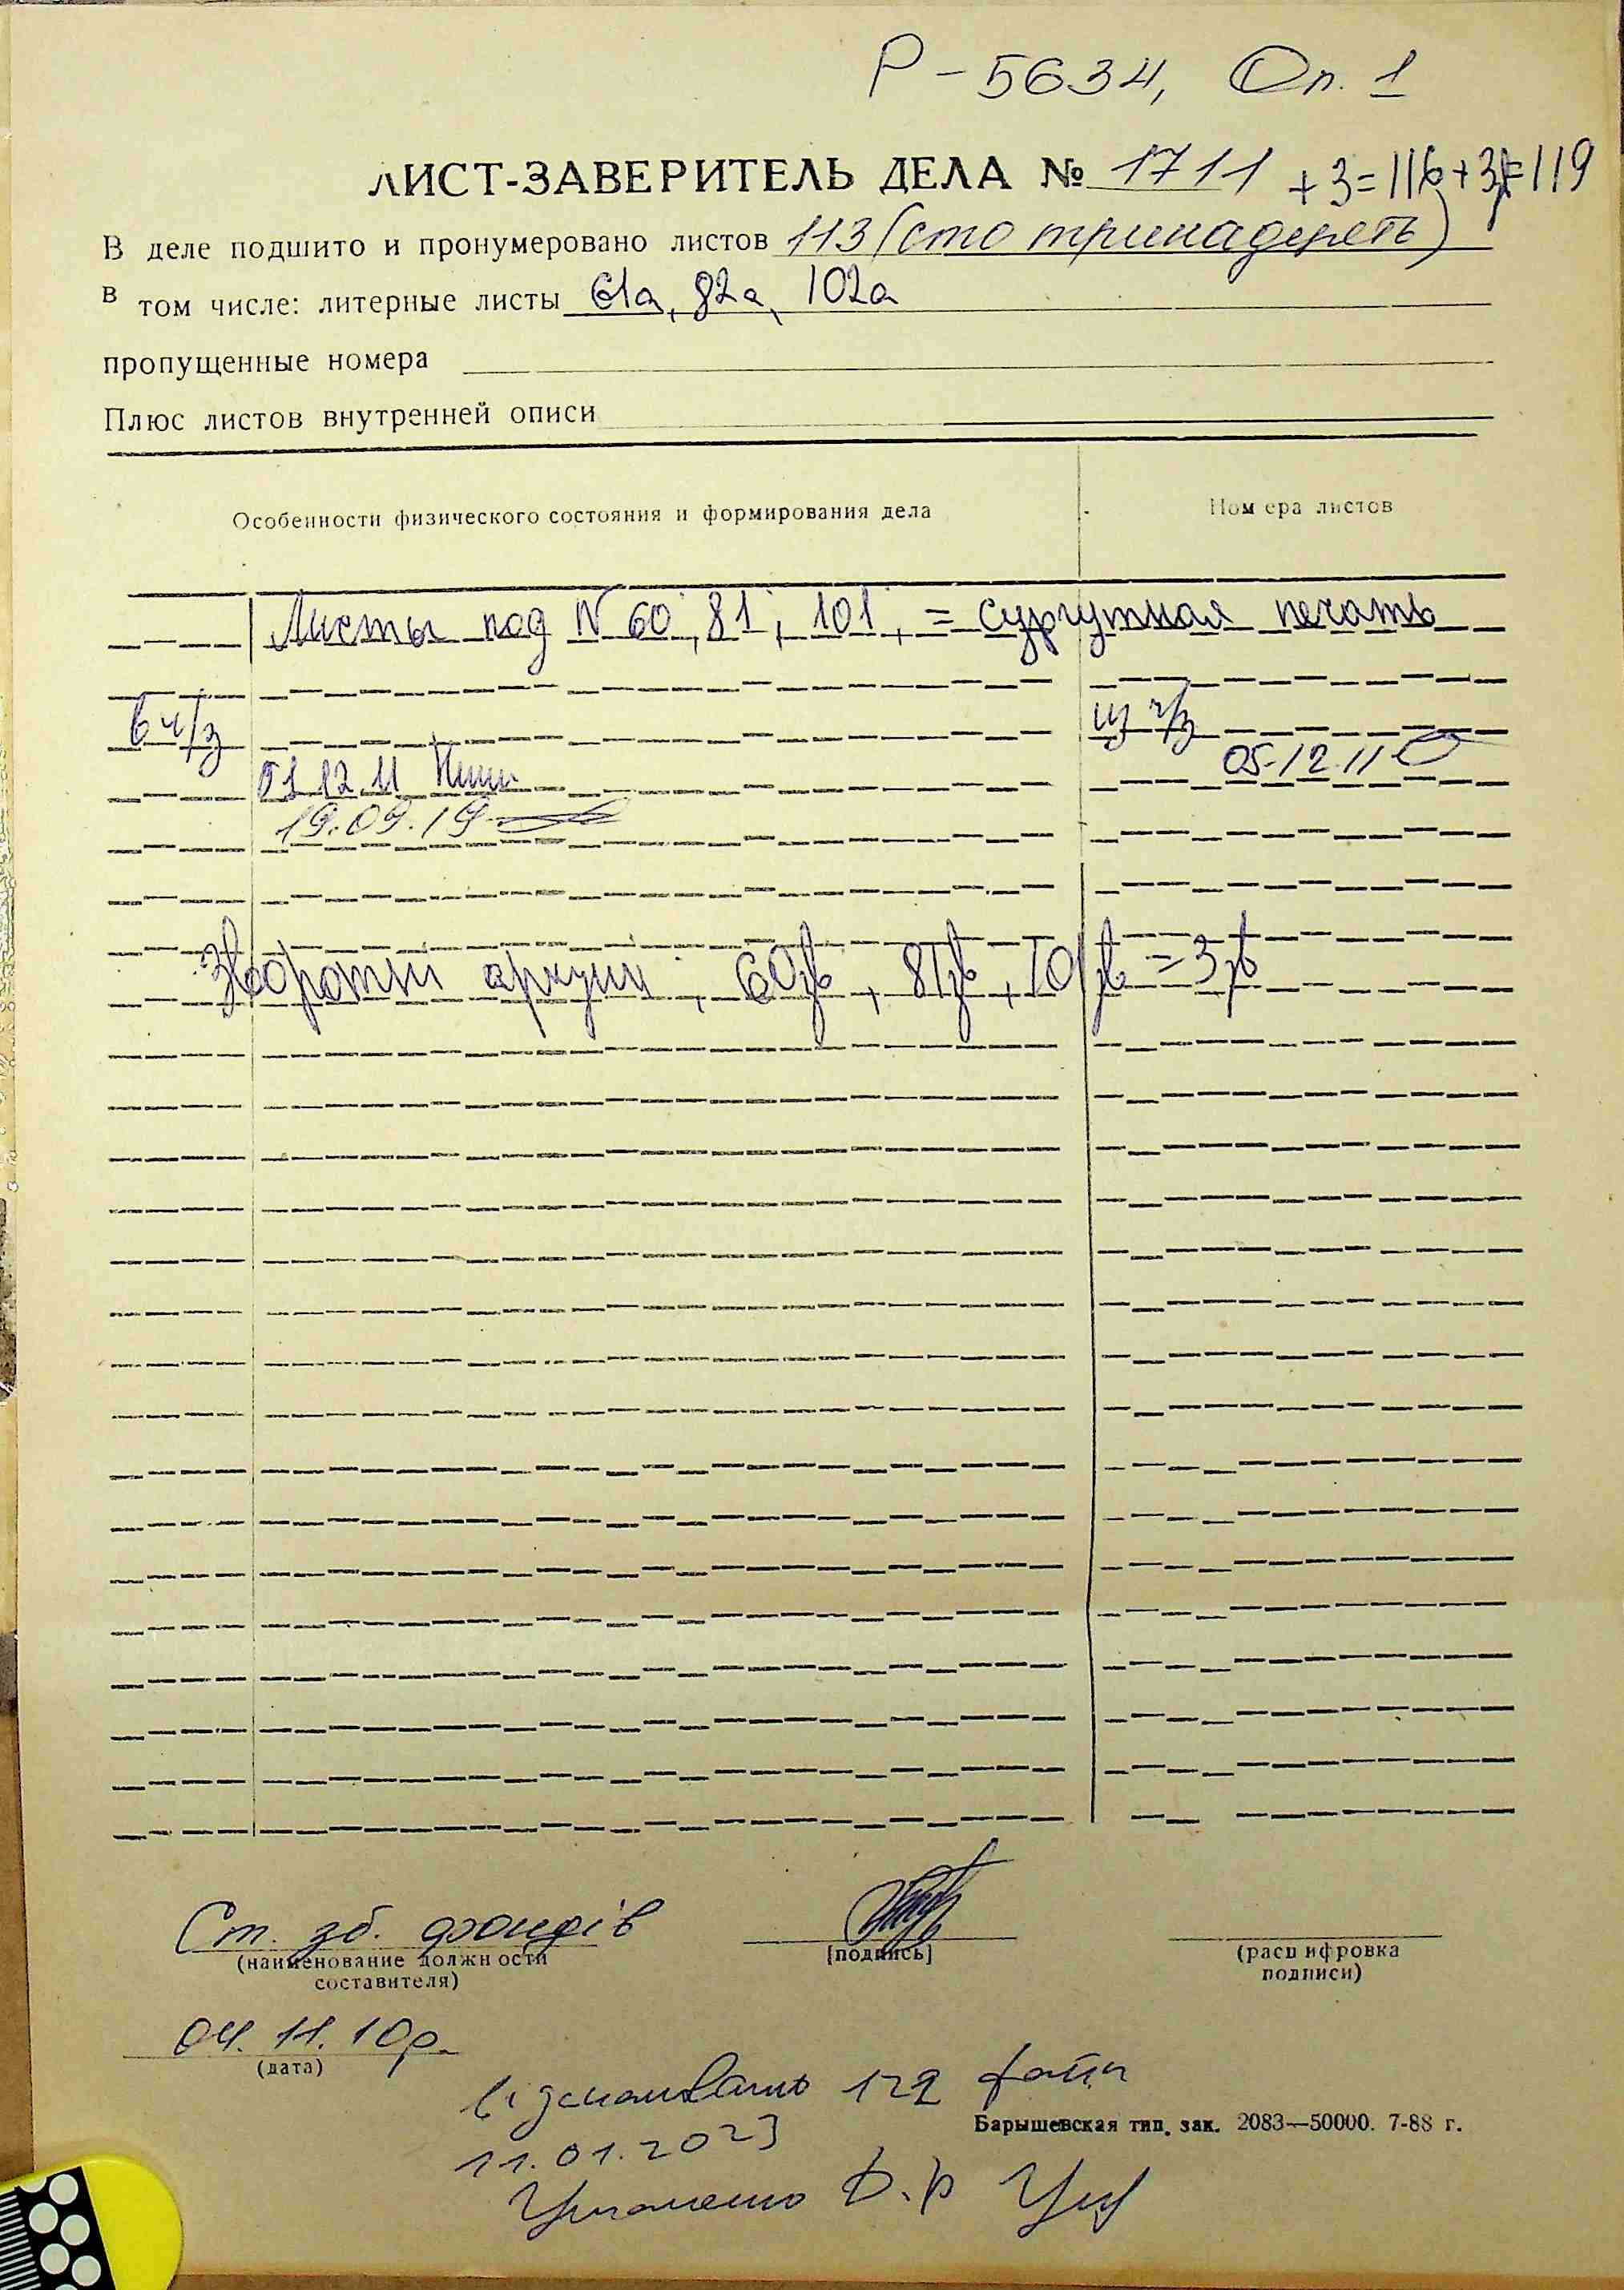 Р-5634, Оп. 1
ЛИСТ-ЗАВЕРИТЕЛЬ ДЕЛА № 1711 +3=116+3зв=119
В деле подшито и пронумеровано листов 113 (сто тринадцять)
в том числе: литерные листы 61а, 82а, 102а
пропущенные номера
Плюс листов внутренней описи
Особенности физического состояния и формирования дела
Номера листов
Листы под N 60, 81, 101, = сургутная печать
в ч/з
из ч/з
01.12.11
05.12.11
19.09.19
Зворотні аркуші, 60зв, 81зв, 101зв = 3зв
Ст. зб. фондів
(наименование должности
составителя)
[подпись]
(расшифровка
подписи)
04.11.10р.
(дата)
Відскановано 122 файли
Барышевская тип. зак. 2083—50000. 7-88 г.
11.01.2023